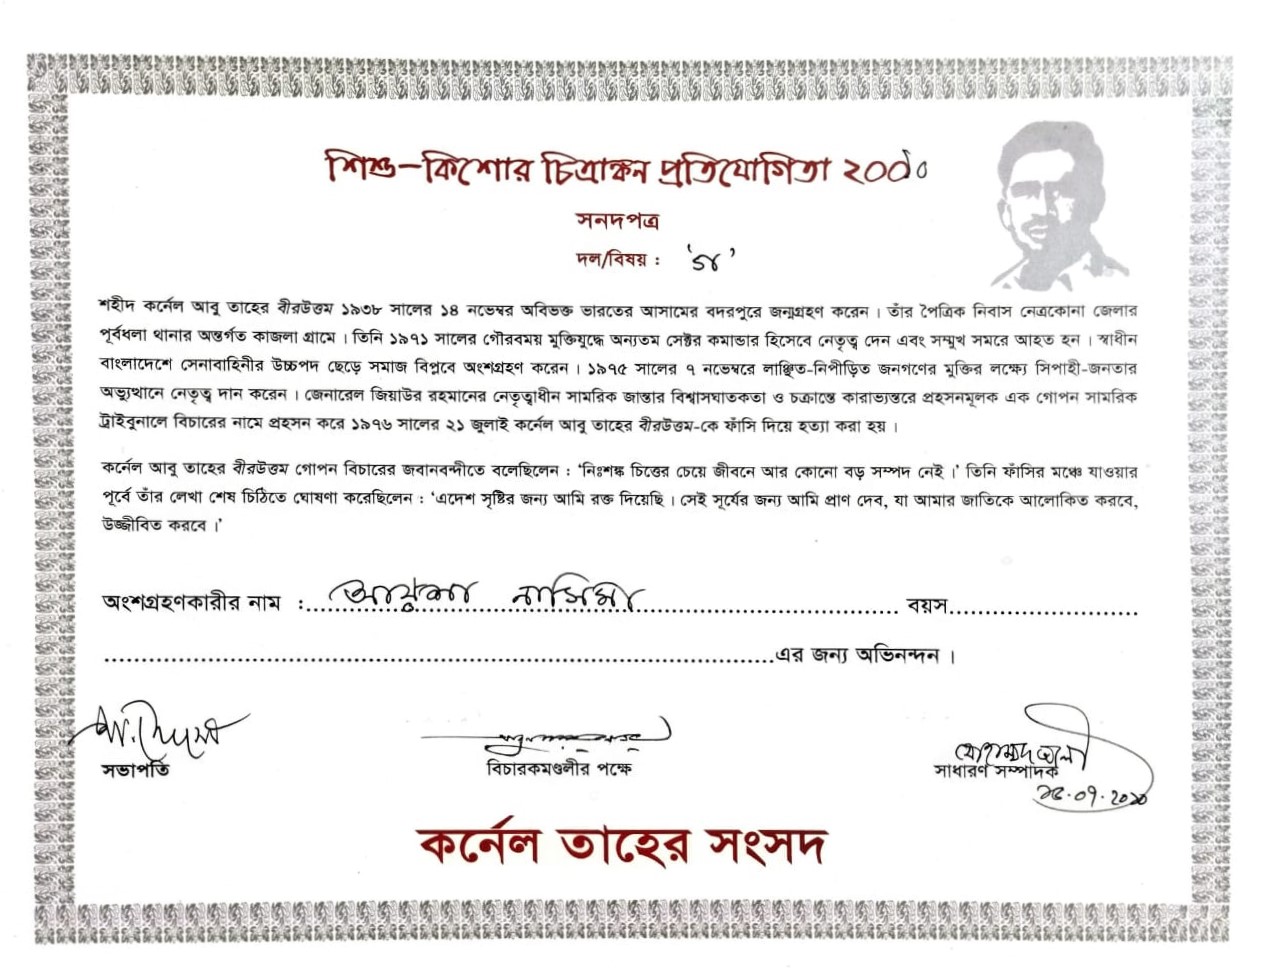 শিশু-কিশোর চিত্রাঙ্কন প্রতিযোগিতা ২০১০
সনদপত্র
দল/বিষয় : ‘গ’
শহীদ কর্নেল আবু তাহের বীরউত্তম ১৯৩৮ সালের ১৪ নভেম্বর অবিভক্ত ভারতের আসামের বদরপুরে জন্মগ্রহণ করেন। তাঁর পৈত্রিক নিবাস নেত্রকোনা জেলার
পূর্বধলা থানার অন্তর্গত কাজলা গ্রামে। তিনি ১৯৭১ সালের গৌরবময় মুক্তিযুদ্ধে অন্যতম সেক্টর কমান্ডার হিসেবে নেতৃত্ব দেন এবং সম্মুখ সমরে আহত হন। স্বাধীন
বাংলাদেশে সেনাবাহিনীর উচ্চপদ ছেড়ে সমাজ বিপ্লবে অংশগ্রহণ করেন। ১৯৭৫ সালের ৭ নভেম্বরে লাঞ্ছিত-নিপীড়িত জনগণের মুক্তির লক্ষ্যে সিপাহী-জনতার
অভ্যুত্থানে নেতৃত্ব দান করেন। জেনারেল জিয়াউর রহমানের নেতৃত্বাধীন সামরিক জান্তার বিশ্বাসঘাতকতা ও চক্রান্তে কারাভ্যন্তরে প্রহসনমূলক এক গোপন সামরিক
ট্রাইবুনালে বিচারের নামে প্রহসন করে ১৯৭৬ সালের ২১ জুলাই কর্নেল আবু তাহের বীরউত্তম-কে ফাঁসি দিয়ে হত্যা করা হয়।
কর্নেল আবু তাহের বীরউত্তম গোপন বিচারের জবানবন্দীতে বলেছিলেন : ‘নিঃশঙ্ক চিত্তের চেয়ে জীবনে আর কোনো বড় সম্পদ নেই।’ তিনি ফাঁসির মঞ্চে যাওয়ার
পূর্বে তাঁর লেখা শেষ চিঠিতে ঘোষণা করেছিলেন : ‘এদেশ সৃষ্টির জন্য আমি রক্ত দিয়েছি। সেই সূর্যের জন্য আমি প্রাণ দেব, যা আমার জাতিকে আলোকিত করবে,
উজ্জীবিত করবে।’
অংশগ্রহণকারীর নাম : আয়শা নাসিমা বয়স
এর জন্য অভিনন্দন।
সভাপতি
বিচারকমণ্ডলীর পক্ষে
সাধারণ সম্পাদক
কর্নেল তাহের সংসদ